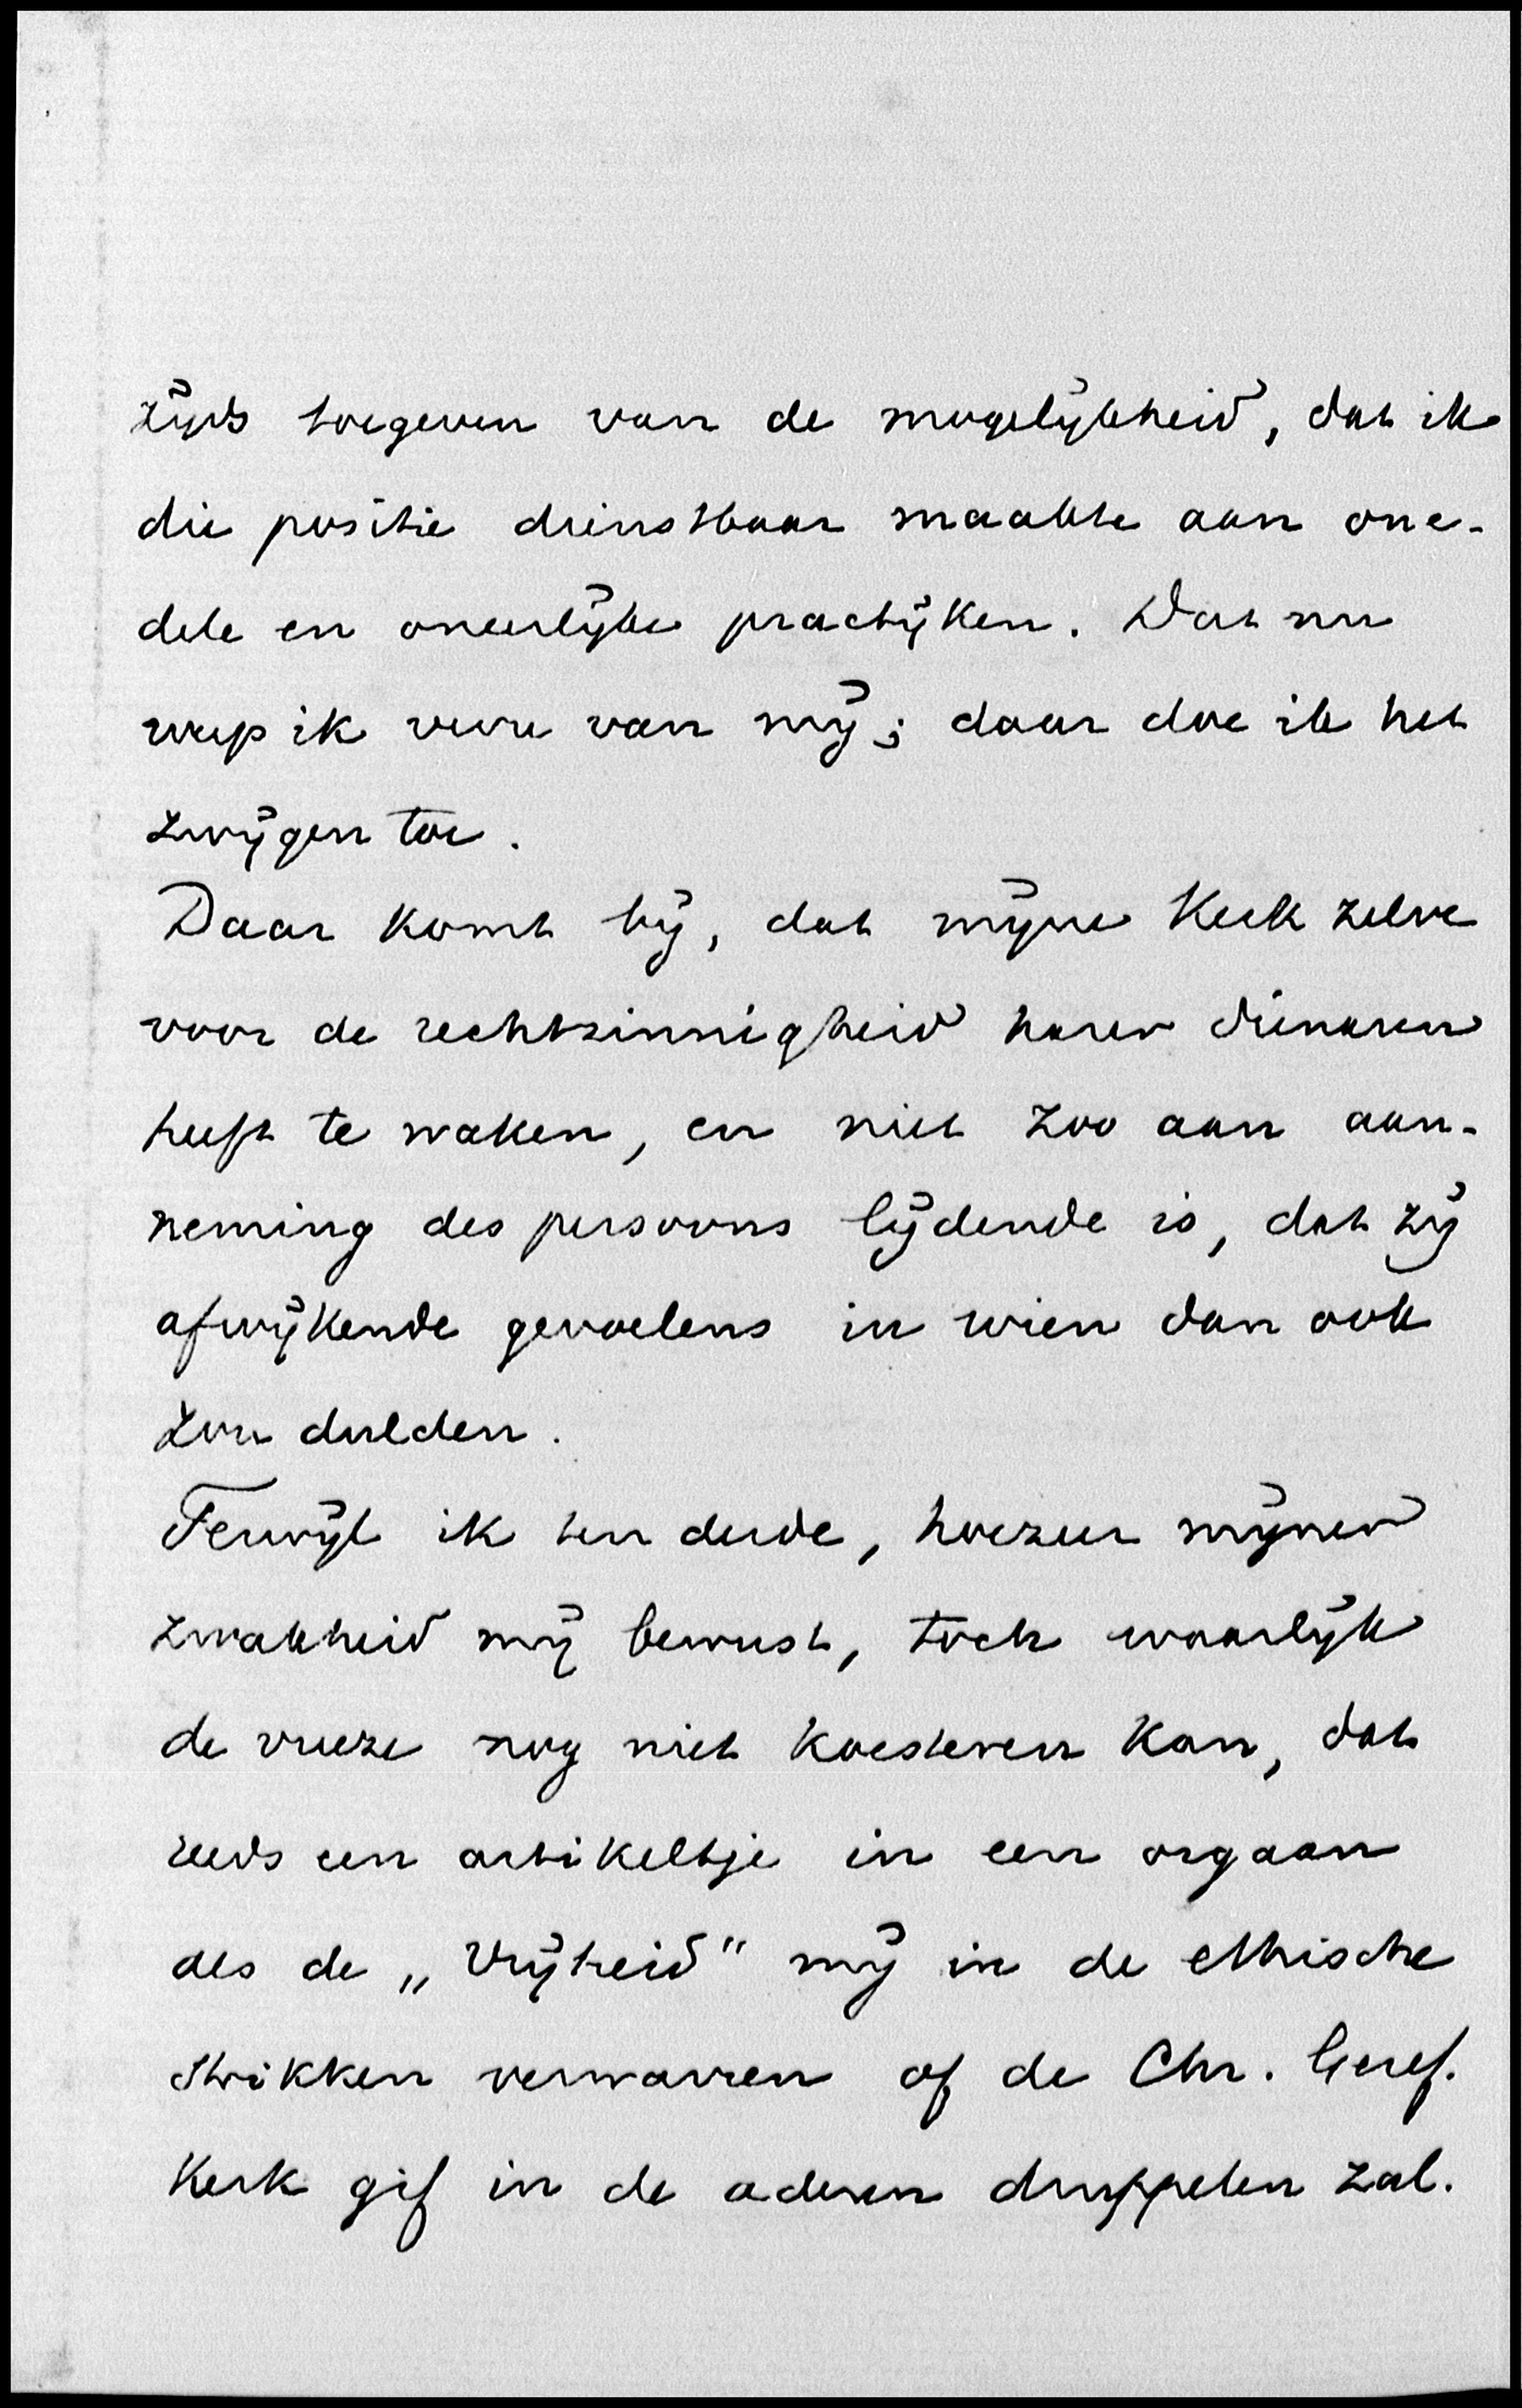 zijds toegeven van de mogelijkheid, dat ik
die positie dienstbaar maakte aan one-
dele en oneerlijke practijken. Dat nu
werp ik verre van mij; daar doe ik het
zwijgen toe.
Daar komt bij, dat mijne Kerk zelve
voor de rechtzinnigheid harer dienaren
heeft te waken, en niet zoo aan aan-
neming des persoons lijdende is, dat zij
afwijkende gevoelens in wien dan ook
zou dulden.
Terwijl ik ten derde, hoezeer mijner
zwakheid mij bewust, toch waarlijk
de vreeze nog niet koesteren kan, dat
reeds een artikeltje in een orgaan
als de „Vrijheid" mij in de ethische
strikken verwarren of de Chr. Geref.
Kerk gif in de aderen druppelen zal.